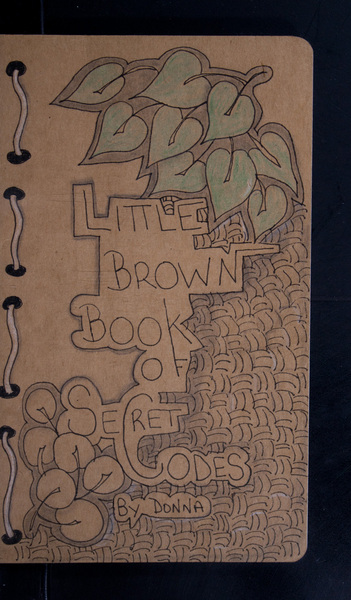 LITTLE
BROWN
BOOK
OF
SECRET
CODES
BY DONNA